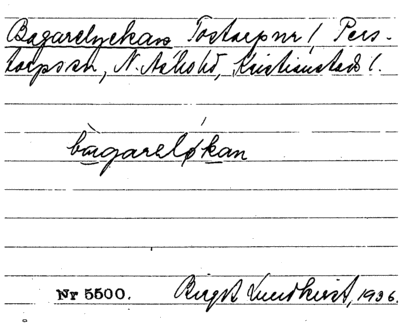 Bagarelyckan Tostarp nr 1 Pers-
torps sn, N. Åsbo hd, Kristianstads l.
bàgarelókan
Nr 5500. Birgit Lundkvist, 1936.